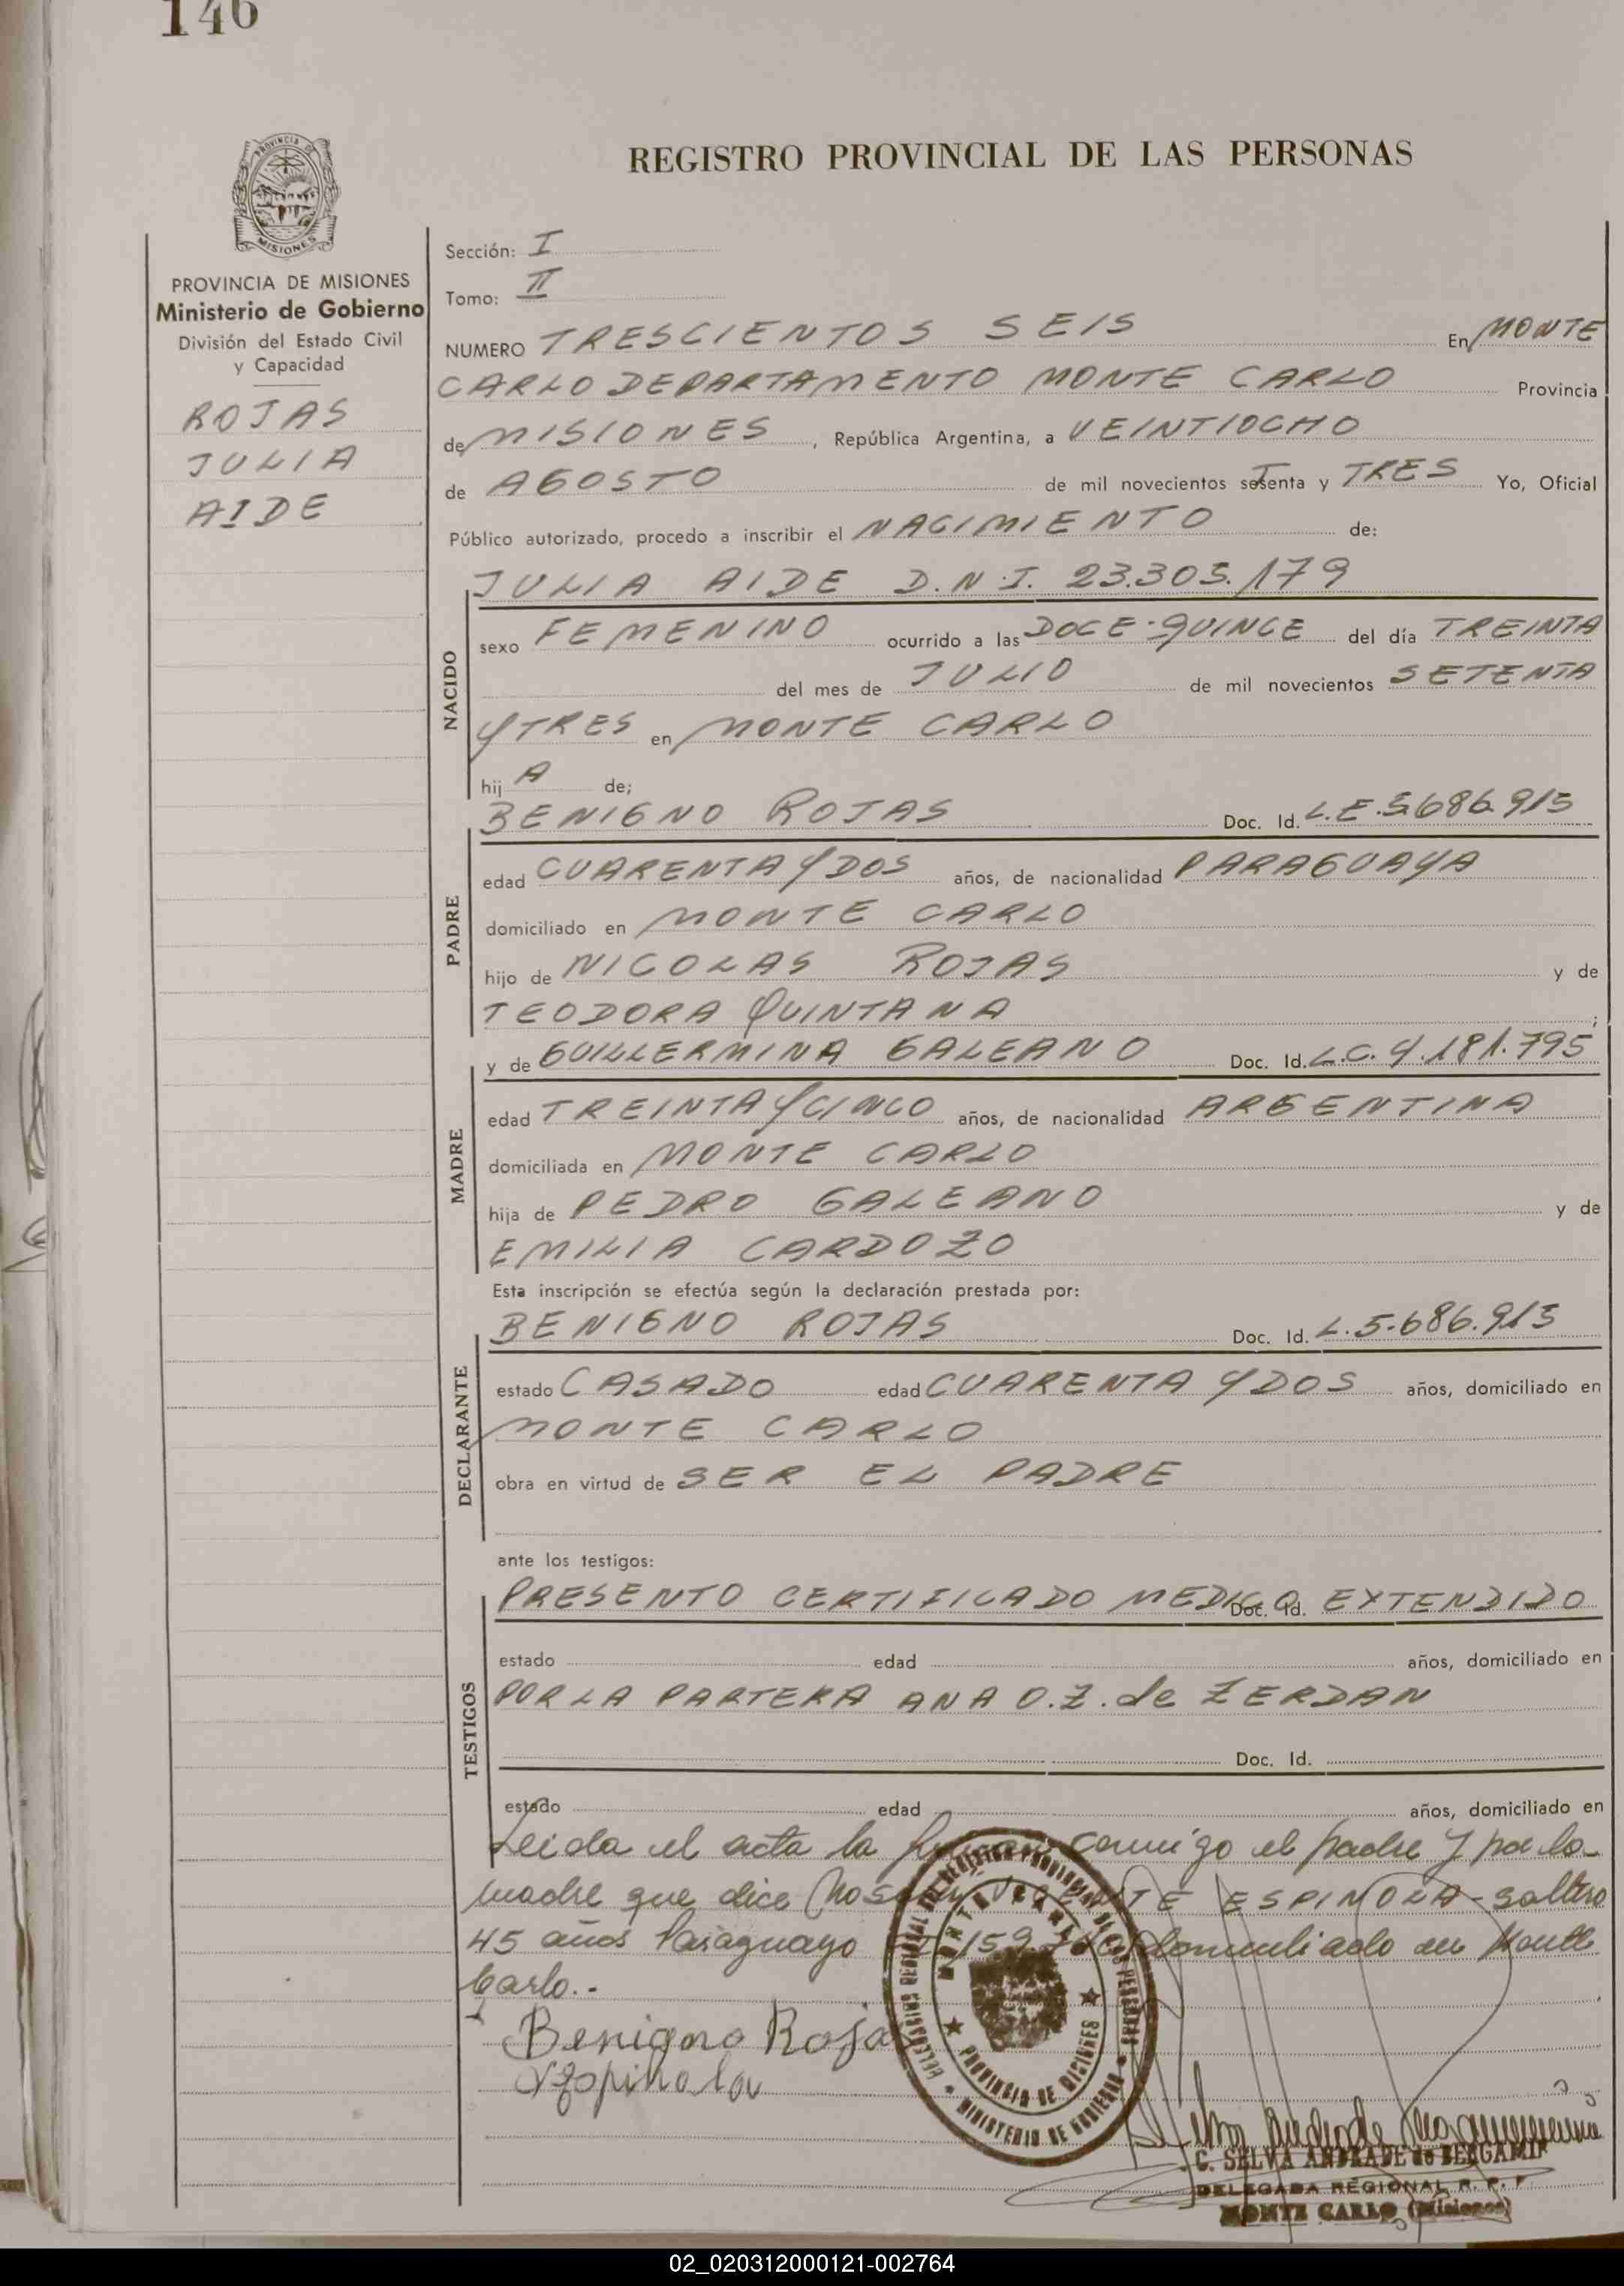 146
PROVINCIA DE
MISIONES
REGISTRO PROVINCIAL DE LAS PERSONAS
PROVINCIA DE MISIONES
Ministerio de Gobierno
División del Estado Civil
y Capacidad
ROJAS
JULIA
AIDE
Sección: I
Tomo: II
NUMERO TRESCIENTOS SEIS En MONTE
CARLO DEPARTAMENTO MONTE CARLO Provincia
de MISIONES, República Argentina, a VEINTIOCHO
de AGOSTO de mil novecientos setenta y TRES Yo, Oficial
Público autorizado, procedo a inscribir el NACIMIENTO de:
JULIA AIDE D.N.I. 23.303.179
NACIDO
sexo FEMENINO ocurrido a las DOCE-QUINCE del día TREINTA
del mes de JULIO de mil novecientos SETENTA
Y TRES en MONTE CARLO
hij A de;
BENIGNO ROJAS Doc. Id. L.E.5.686.913
PADRE
edad CUARENTA Y DOS años, de nacionalidad PARAGUAYA
domiciliado en MONTE CARLO
hijo de NICOLAS ROJAS y de
TEODORA QUINTANA ;
y de GUILLERMINA GALEANO Doc. Id. L.C. 4.181.795
MADRE
edad TREINTA Y CINCO años, de nacionalidad ARGENTINA
domiciliada en MONTE CARLO
hija de PEDRO GALEANO y de
EMILIA CARDOZO
Esta inscripción se efectúa según la declaración prestada por:
BENIGNO ROJAS Doc. Id. L.5.686.913
DECLARANTE
estado CASADO edad CUARENTA Y DOS años, domiciliado en
MONTE CARLO
obra en virtud de SER EL PADRE
ante los testigos:
PRESENTO CERTIFICADO MEDICO Doc. Id. EXTENDIDO
TESTIGOS
estado edad años, domiciliado en
POR LA PARTERA ANA O.Z. de ZERDAN
Doc. Id.
estado edad años, domiciliado en
Leida el acta la conmigo el padre y por la
madre que dice no ESPINOLA - soltero
45 años Paraguayo 159. domiciliado en Monte
Carlo.-
Benigno Rojas
Espinola
MONTE CARLO
PROVINCIA DE MISIONES
MINISTERIO DE GOBIERNO
C. SELVA ANDRADE de BERGAMIN
DELEGADA REGIONAL R. P. P.
MONTE CARLO (Misiones)
02_020312000121-002764